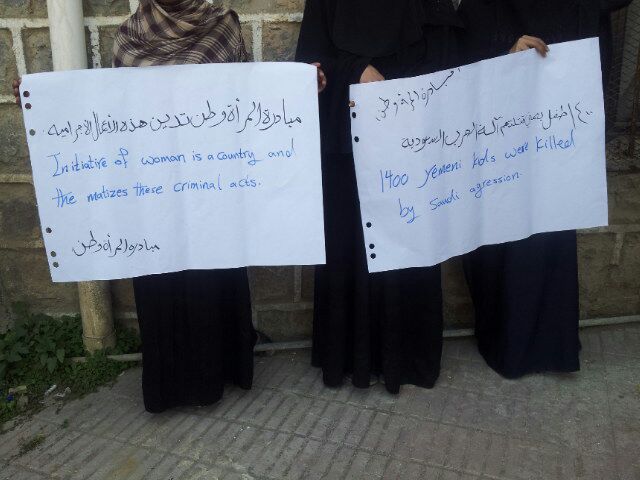 مبادرة المرأة وطن تدين هذه الأعمال الإجرامية.
Initiative of woman is a country and
the matizes these criminal acts.
مبادرة المرأة وطن
مبادرة المرأة وطن
١٤٠٠ طفل يمني قتلتهم آلة الحرب السعودية
1400 yemeni kids were killed
by Saudi agression.